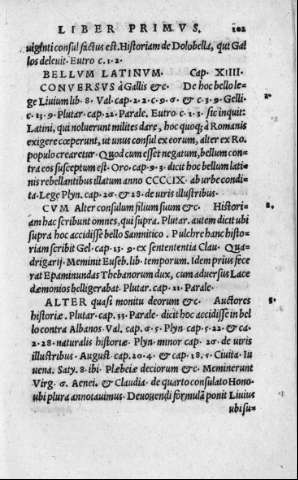 LIBER PRIMVS. 102
uiginti consul factus est. Historiam de Dolobella, qui Gal
los deleuit. Eutro c. 1. 2.
BELLVM LATINVM. Cap. XIIII.
CONVERSVS à Gallis &c. De hoc bello le-
ge Liuium lib. 8. Val. cap. 2. 2. c. 9. 6. & c. 3. 9. Gelli.
c. 13. 9. Plutar. cap. 22. Parale. Eutro c. 1. 3. sic inquit:
Latini, qui noluerunt milites dare, hoc quoq; à Romanis
exigere cœperunt, ut unus consul ex eorum, alter ex Ro.
populo crearetur. Quod cum esset negatum, bellum con-
tra eos susceptum est. Oro. cap. 9. 3. dicit hoc bellum lati
nis rebellantibus illatum anno CCCCIX. ab urbe condi-
ta. Lege Plyn. cap. 20. & 28. de uiris illustribus.
CVM Alter consulum filium suum &c. Histori-
am hac scribunt omnes, qui supra. Plutar. autem dicit ubi
supra hoc accidisse bello Samnitico. Pulchre hanc histo-
riam scribit Gel. cap. 13. 9. ex sentententia Clau. Qua-
drigarij. Meminit Euseb. lib. temporum. Idem prius fece
rat Epaminundas Thebanorum dux, cum aduersus Lace
dæmonios belligerabat. Plutar. cap. 21. Parale.
ALTER quasi monitu deorum &c. Auctores
historiæ. Plutar. cap. 33. Parale. dicit hoc accidisse in bel
lo contra Albanos. Val. cap. 6. 5. Plyn cap. 5. 22. & ca.
2. 28. naturalis historiæ. Plyn. minor cap. 26. de uiris
illustribus. August. cap. 20. 4. & cap. 18. 5. Ciuita. Iu
uena. Saty. 8. ibi. Plæbeiæ deciorum &c. Meminerunt
Virg. 6. Aenei. & Claudia. de quarto consulato Hono-
ubi plura annotauimus. Deuouendi formulā ponit Liuius
ubi su-